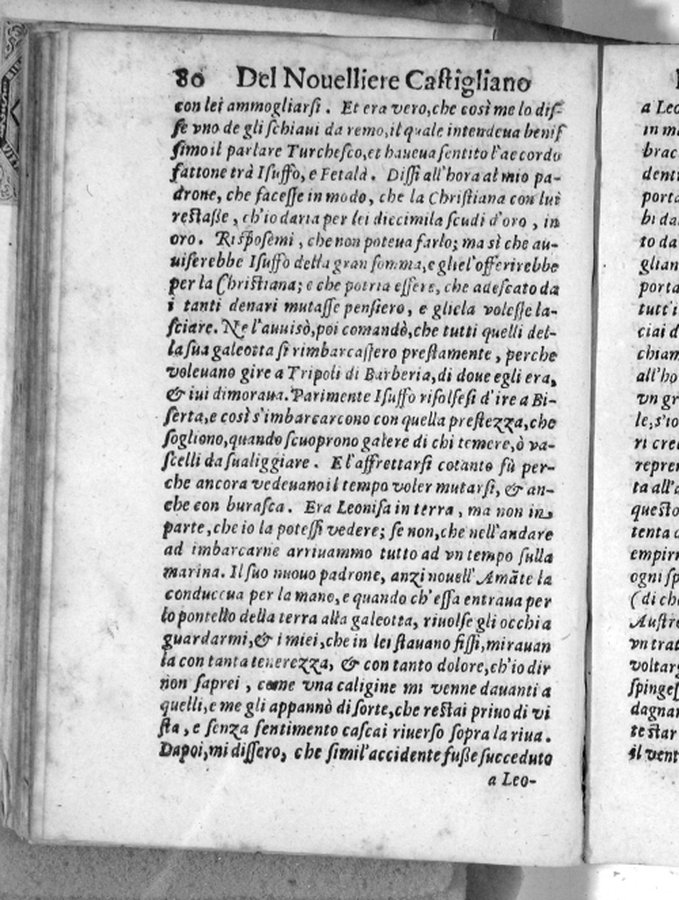 80 Del Nouelliere Castigliano
con lei ammogliarsi. Et era vero, che così me lo dis-
se vno de gli schiaui da remo, il quale intendeua benis
simo il parlare Turchesco, et haueua sentito l'accordo
fattone trà Isuffo, e Fetalà. Dissi all'hora al mio pa-
drone, che facesse in modo, che la Christiana con lui
restasse, ch'io daria per lei diecimila scudi d'oro, in
oro. Risposemi, che non poteua farlo; ma sì che au-
uiserebbe Isuffo della gran somma, e gliel'offerirebbe
per la Christiana; e che potria essere, che adescato da
i tanti denari mutasse pensiero, e gliela volesse la-
sciare. Ne l'auuisò, poi comandò, che tutti quelli del-
la sua galeotta si rimbarcassero prestamente, perche
voleuano gire a Tripoli di Barberia, di doue egli era,
& iui dimoraua. Parimente Isuffo risolsesi d'ire a Bi-
serta, e così s'imbarcarcono con quella prestezza, che
sogliono, quando scuoprono galere di chi temere, ò va-
scelli da sualiggiare. E l'affrettarsi cotanto fù per-
che ancora vedeuano il tempo voler mutarsi, & an-
che con burasca. Era Leonisa in terra, ma non in
parte, che io la potessi vedere; se non, che nell'andare
ad imbarcarne arriuammo tutto ad vn tempo sulla
marina. Il suo nuouo padrone, anzi nouell'Amāte la
conduceua per la mano, e quando ch'essa entraua per
lo pontello della terra alla galeotta, riuolse gli occhi a
guardarmi, & i miei, che in lei stauano fissi, mirauan
la con tanta tenerezza, & con tanto dolore, ch'io dir
non saprei, come vna caligine mi venne dauanti a
quelli, e me gli appannò di sorte, che restai priuo di vi
sta, e senza sentimento cascai riuerso sopra la riua.
Dapoi, mi dissero, che simil'accidente fusse succeduto
a Leo-
a Leo
in ma
brac
denti
porta
bi da
to da
glian
porta
tutt'i
ciai d
chiam
all'ho
vn gr
le, s'io
ri cre
repren
ta all'a
questo
tenta
empirn
ogni sp
(di ch
Austr
vn trat
voltar
spinges
dagnar
te star
il vent